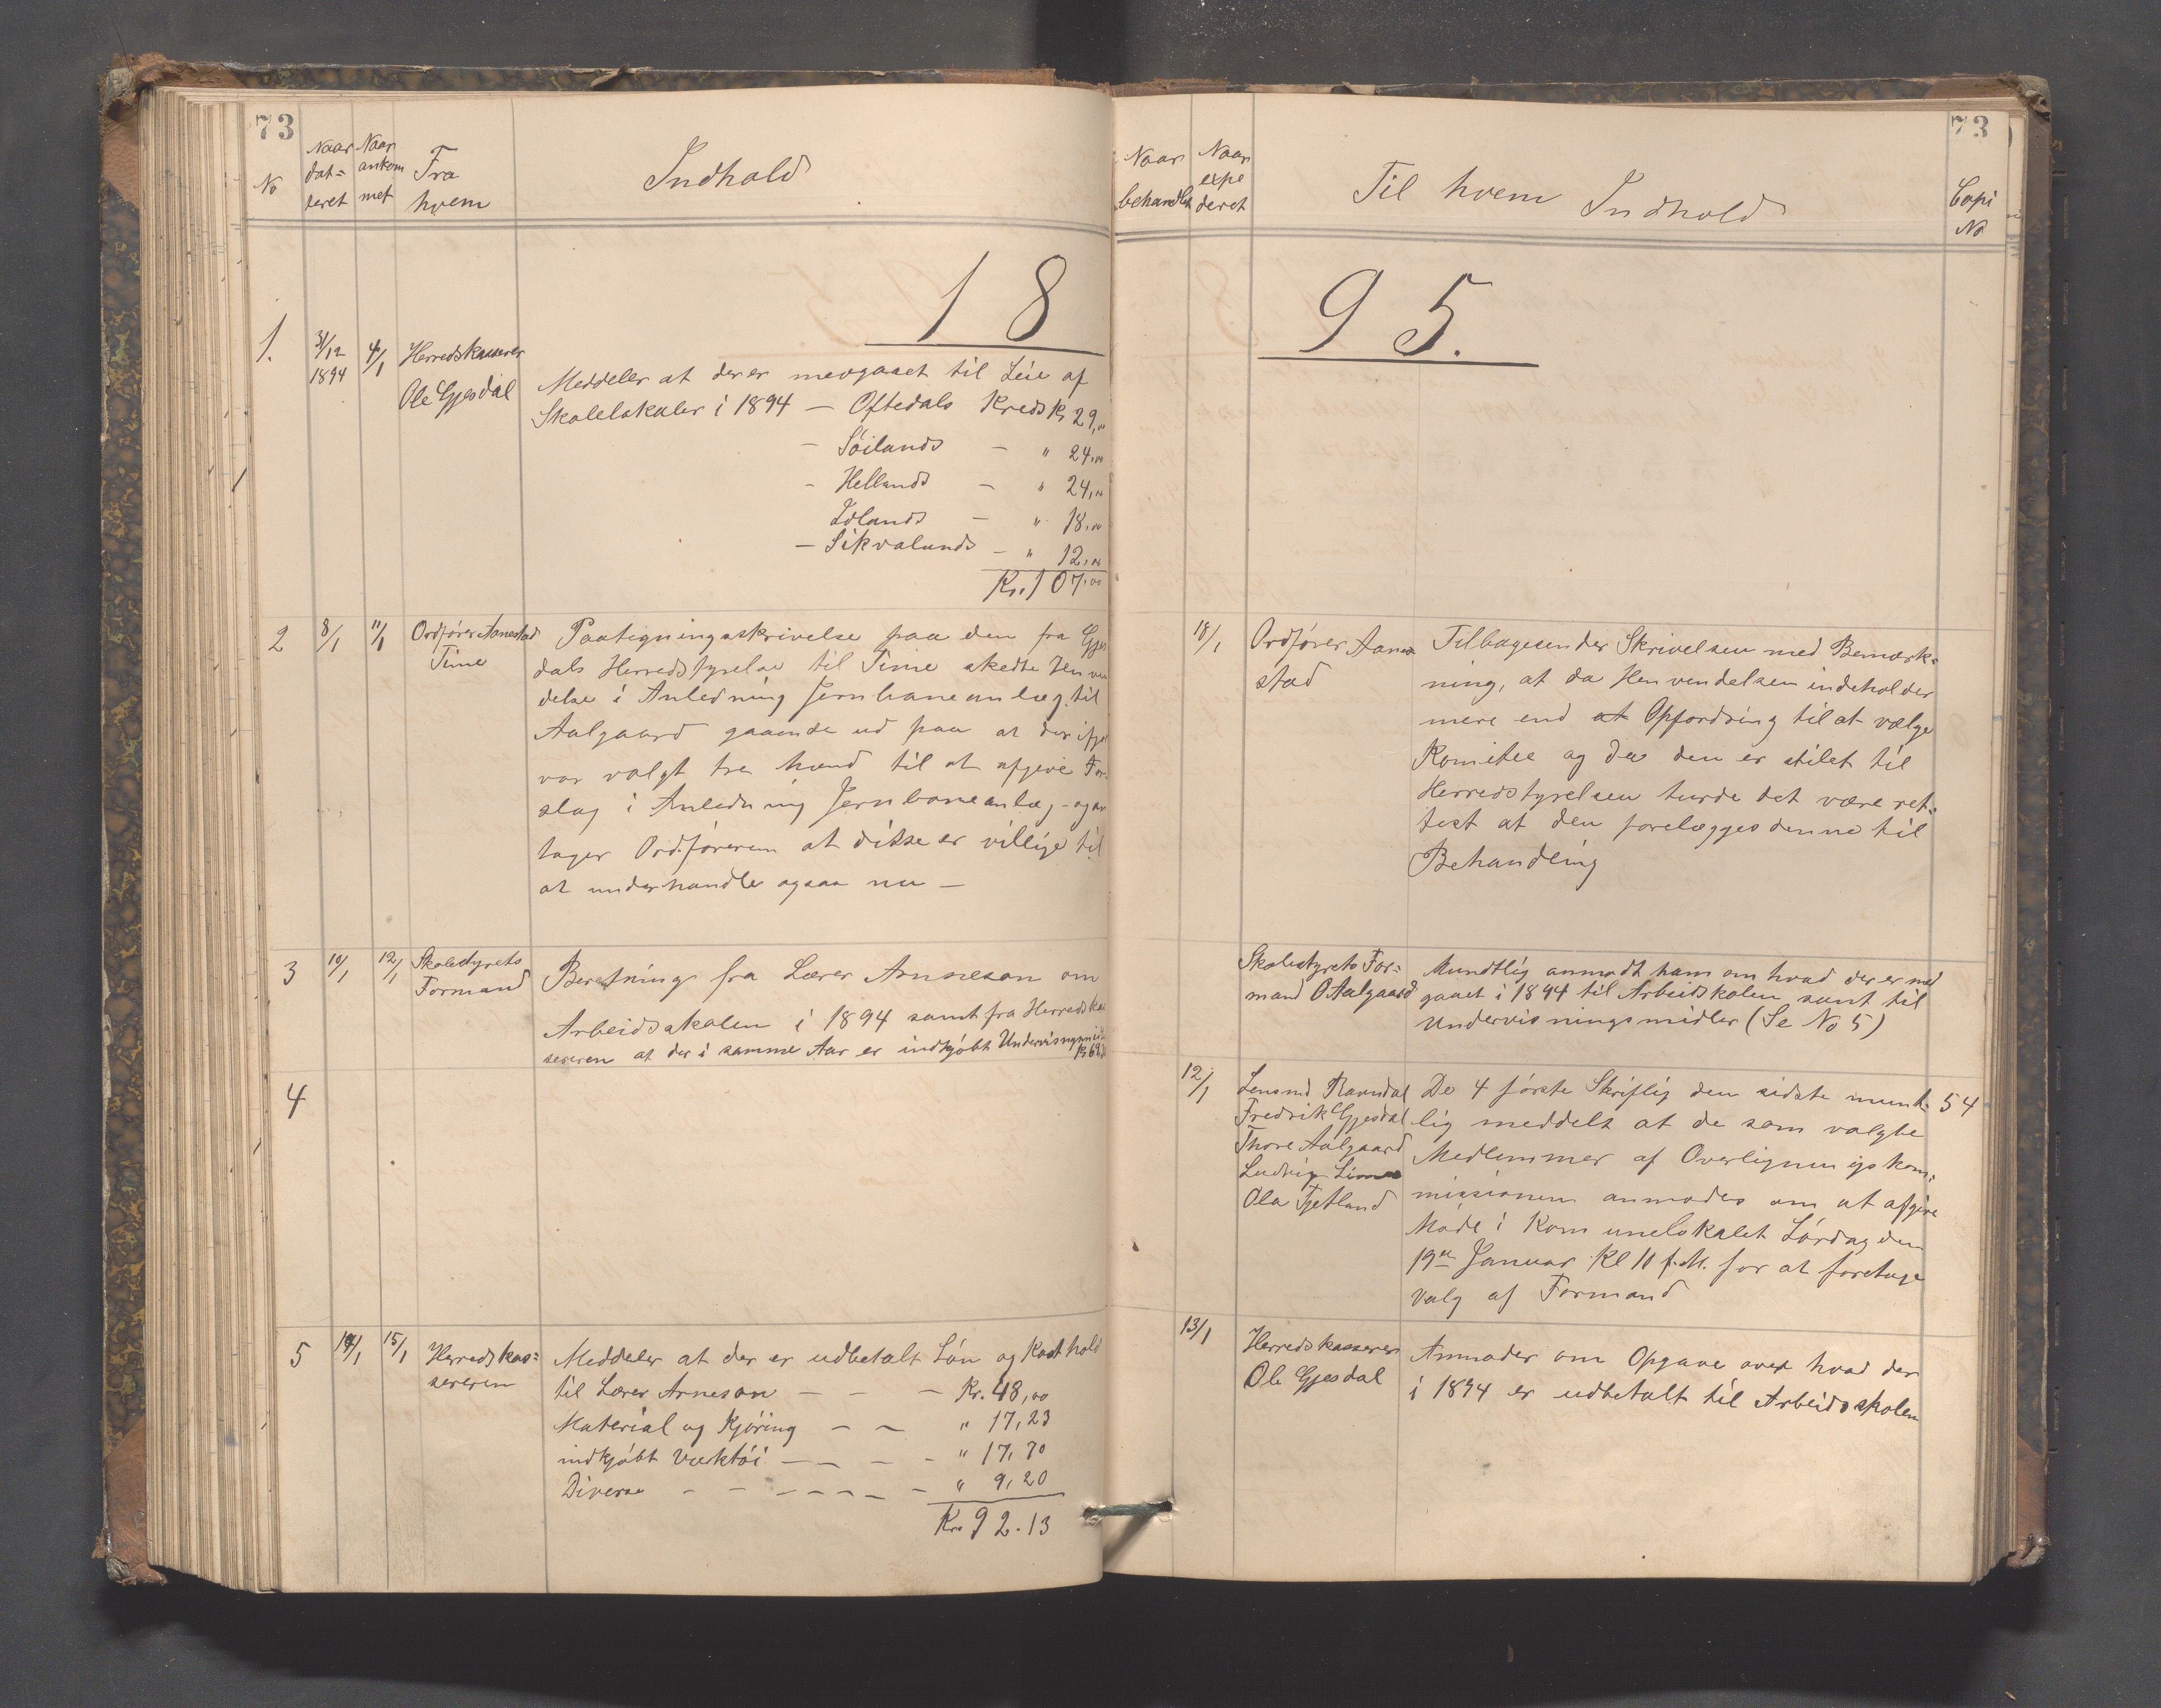 73
No
Naar dat= teret
Naar ankom met
Fra hvem
Indhold
18
1.
31/12 1894
4/1
Herredskasserer
Ole Gjesdal
Meddeler at der er medgaaet til Leie af
Skolelokaler i 1894 — Oftedals Kreds Kr 29,00
— Söilands — " 24,00
- Hellands — " 24,00
Idlands — " 18,00
— Sikvalands — " 12,00
Kr. 107,00
2
8/1
11/1
Ordfører Aanestad
Time
Paategningsskrivelse paa den fra Gjes
dals Herredstyrelse til Time skedte Henven
delse i Anledning Jernbaneanlæg til
Aalgaard gaaende ud paa at der ifjor
var valgt tre Mænd til at afgive For-
slag i Anledning Jernbaneanlæg - og an
tager Ordføreren at disse er villige til
at underhandle ogsaa nu —
3
10/1
12/1
Skolestyrets
Formand
Beretning fra Lærer Arnneson om
Arbeidsskolen i 1894 samt fra Herredskas
sereren at der i samme Aar er indkjöbt Undervisngsmid
Kr 69
4
5
14/1
15/1
Herredskas=
sereren
Meddeler at der er udbetalt Lön og Kosthold
til Lærer Arneson — — — Kr. 48,00
Material og Kjöring — — " 17,23
indkjöbt Værktöi — — — - " 17,70
Diverse - - - - - - - " 9,20
Kr. 92.13
73
Naar behandlet
Naar expe deret
Til hvem
Indhold
Copi No
95.
18/1
Ordfører Aane
stad
Tilbagesender Skrivelsen med Bemærk=
ning, at da Henvendelsen indeholder
mere end at Opfordring til at vælge
Komitee og da den er stilet til
Herredstyrelsen turde det være ret=
test at den forelægges denne til
Behandling
Skolestyrets For=
mand O Aalgaard
Mundtlig anmodt ham om hvad der er med
gaaet i 1894 til Arbeidskolen samt til
Undervisningsmidler (Se No 5)
12/1
Lensmd Ravndal
Fredrik Gjesdal
Thore Aalgaard
Ludvig Lima
Ola Fjetland
De 4 første Skriftlig den sidste mundt= 54
lig meddelt at de som valgte
Medlemmer af Overligningskom=
missionen anmodes om at afgive
Möde i Komunelokalet Lördag den
19de Januar Kl 11 f.M. for at foretage
Valg af Formand
13/1
Herredskasserer
Ole Gjesdal
Anmoder om Opgave over hvad der
i 1894 er udbetalt til Arbeidsskolen